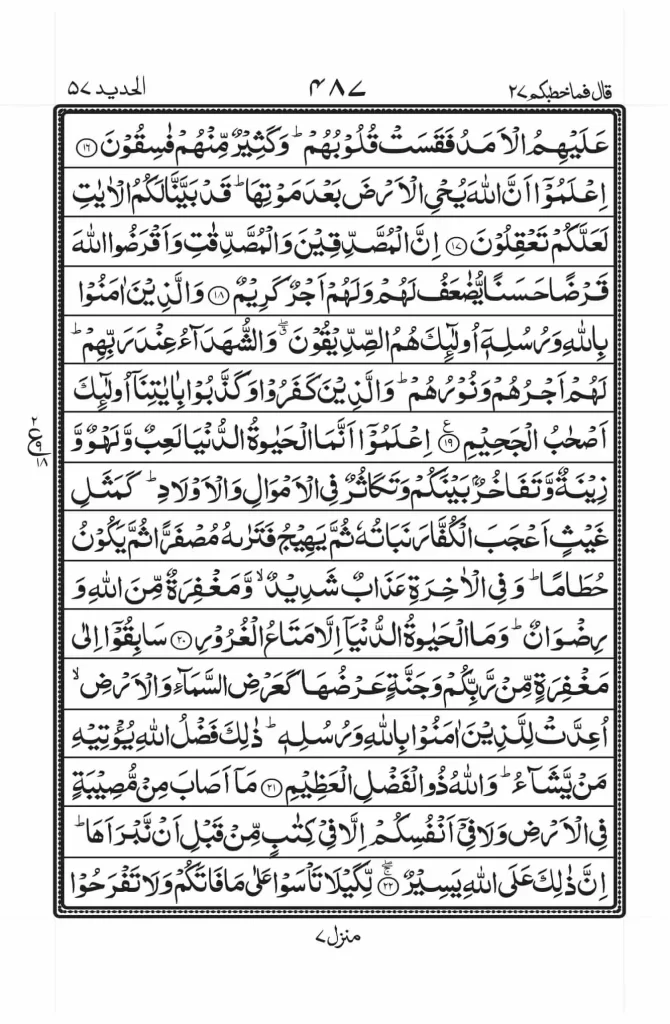 قال فماخطبكم ٢٧ ٤٨٧ الحديد ٥٧
عَلَيْهِمُ الْاَمَدُ فَقَسَتْ قُلُوْبُهُمْ ؕ وَكَثِيْرٌ مِّنْهُمْ فٰسِقُوْنَ ۝١٦
اِعْلَمُوْۤا اَنَّ اللّٰهَ يُحْيِ الْاَرْضَ بَعْدَ مَوْتِهَا ؕ قَدْ بَيَّنَّا لَكُمُ الْاٰيٰتِ
لَعَلَّكُمْ تَعْقِلُوْنَ ۝١٧ اِنَّ الْمُصَّدِّقِيْنَ وَالْمُصَّدِّقٰتِ وَاَقْرَضُوا اللّٰهَ
قَرْضًا حَسَنًا يُّضٰعَفُ لَهُمْ وَلَهُمْ اَجْرٌ كَرِيْمٌ ۝١٨ وَالَّذِيْنَ اٰمَنُوْا
بِاللّٰهِ وَرُسُلِهٖۤ اُولٰٓئِكَ هُمُ الصِّدِّيْقُوْنَ ۖۗ وَالشُّهَدَآءُ عِنْدَ رَبِّهِمْ ؕ
لَهُمْ اَجْرُهُمْ وَنُوْرُهُمْ ؕ وَالَّذِيْنَ كَفَرُوْا وَكَذَّبُوْا بِاٰيٰتِنَاۤ اُولٰٓئِكَ
اَصْحٰبُ الْجَحِيْمِ ۝١٩ ع اِعْلَمُوْۤا اَنَّمَا الْحَيٰوةُ الدُّنْيَا لَعِبٌ وَّلَهْوٌ وَّ
٢ ع ٩ ١٨
زِيْنَةٌ وَّتَفَاخُرٌۢ بَيْنَكُمْ وَتَكَاثُرٌ فِي الْاَمْوَالِ وَالْاَوْلَادِ ؕ كَمَثَلِ
غَيْثٍ اَعْجَبَ الْكُفَّارَ نَبَاتُهٗ ثُمَّ يَهِيْجُ فَتَرٰىهُ مُصْفَرًّا ثُمَّ يَكُوْنُ
حُطَامًا ؕ وَفِي الْاٰخِرَةِ عَذَابٌ شَدِيْدٌ ۙ وَّمَغْفِرَةٌ مِّنَ اللّٰهِ وَ
رِضْوَانٌ ؕ وَمَا الْحَيٰوةُ الدُّنْيَاۤ اِلَّا مَتَاعُ الْغُرُوْرِ ۝٢٠ سَابِقُوْۤا اِلٰى
مَغْفِرَةٍ مِّنْ رَّبِّكُمْ وَجَنَّةٍ عَرْضُهَا كَعَرْضِ السَّمَآءِ وَالْاَرْضِ ۙ
اُعِدَّتْ لِلَّذِيْنَ اٰمَنُوْا بِاللّٰهِ وَرُسُلِهٖ ؕ ذٰلِكَ فَضْلُ اللّٰهِ يُؤْتِيْهِ
مَنْ يَّشَآءُ ؕ وَاللّٰهُ ذُو الْفَضْلِ الْعَظِيْمِ ۝٢١ مَاۤ اَصَابَ مِنْ مُّصِيْبَةٍ
فِي الْاَرْضِ وَلَا فِيْۤ اَنْفُسِكُمْ اِلَّا فِيْ كِتٰبٍ مِّنْ قَبْلِ اَنْ نَّبْرَاَهَا ؕ
اِنَّ ذٰلِكَ عَلَى اللّٰهِ يَسِيْرٌ ۝٢٢ لِّكَيْلَا تَاْسَوْا عَلٰى مَا فَاتَكُمْ وَلَا تَفْرَحُوْا
منزل ٧